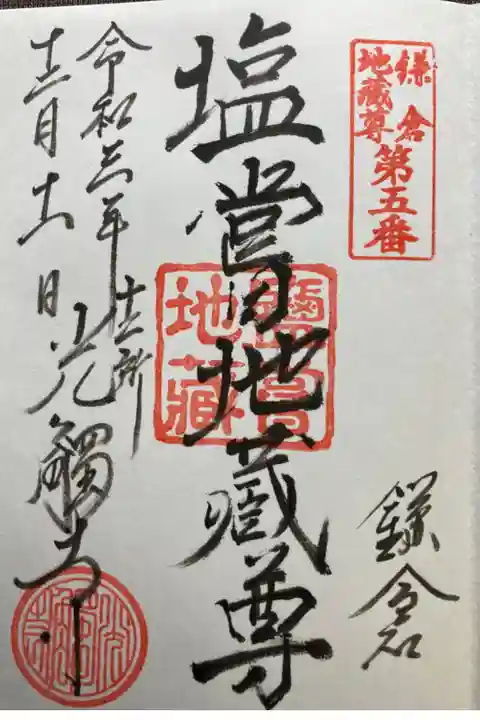 鎌倉
地蔵尊
第五番
鎌倉
塩嘗地蔵尊
鹽嘗
地藏
令和三年
十二月十一日
十二所
光觸寺